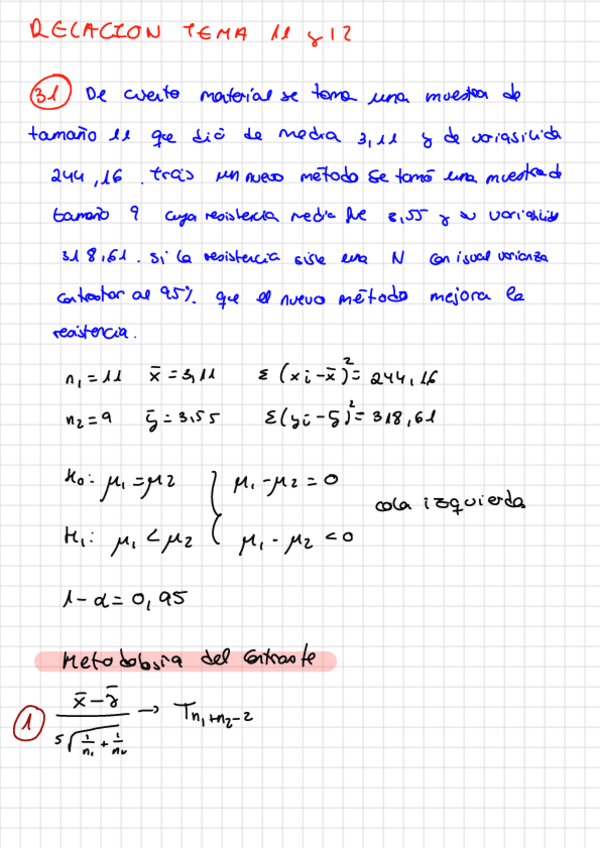 RELACION TEMA 11 y 12
31 De cierto material se toma una muestra de
tamaño 11 que dió de media 3,11 y de
244,16. tras un nuevo método se tomó una muestra de
tamaño 9 cuya resistencia media fue 3,55 y su
318,61. si la resistencia sigue una N con igual varianza
contrastar al 95% que el nuevo método mejora la
resistencia.
n₁=11 x̄=3,11 Σ(xi-x̄)²=244,16
n₂=9 ȳ=3,55 Σ(yi-ȳ)²=318,61
H₀: μ₁=μ₂ } μ₁-μ₂=0
cola izquierda
H₁: μ₁<μ₂ } μ₁-μ₂<0
1-α=0,95
Metodología del Contraste
1 (x̄-ȳ)/(s√(1/n₁+1/n₂)) → Tn₁+n₂-2